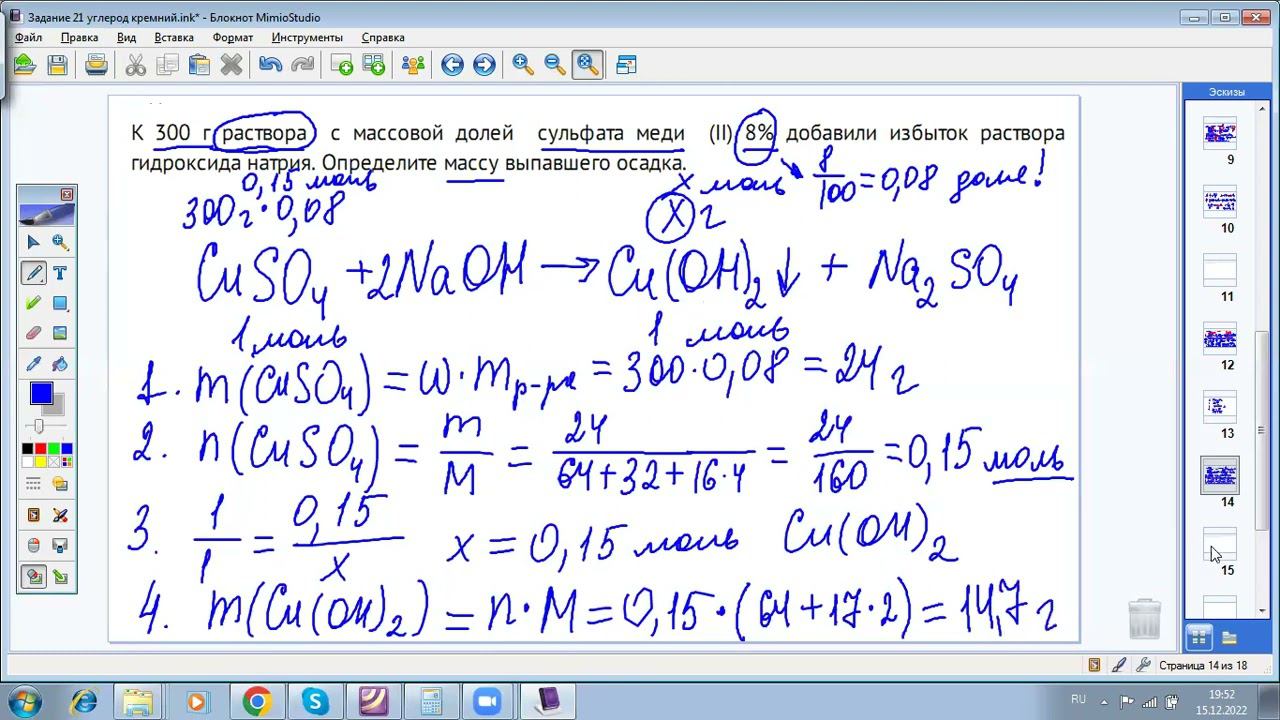 Задание 21 углерод кремний.ink* - Блокнот MimioStudio
Файл Правка Вид Вставка Формат Инструменты Справка
Эскизы
К 300 г раствора с массовой долей сульфата меди (II) 8% добавили избыток раствора
гидроксида натрия. Определите массу выпавшего осадка.
0,15 моль x моль 8/100 = 0,08 доля!
300г·0,08 X г
CuSO4 + 2NaOH → Cu(OH)2↓ + Na2SO4
1 моль 1 моль
1. m(CuSO4) = ω·m р-ра = 300·0,08 = 24 г
2. n(CuSO4) = m/M = 24/(64+32+16·4) = 24/160 = 0,15 моль
3. 1/1 = 0,15/x x = 0,15 моль Cu(OH)2
4. m(Cu(OH)2) = n·M = 0,15·(64+17·2) = 14,7 г
9
10
11
12
13
14
15
Страница 14 из 18
RU
19:52
15.12.2022